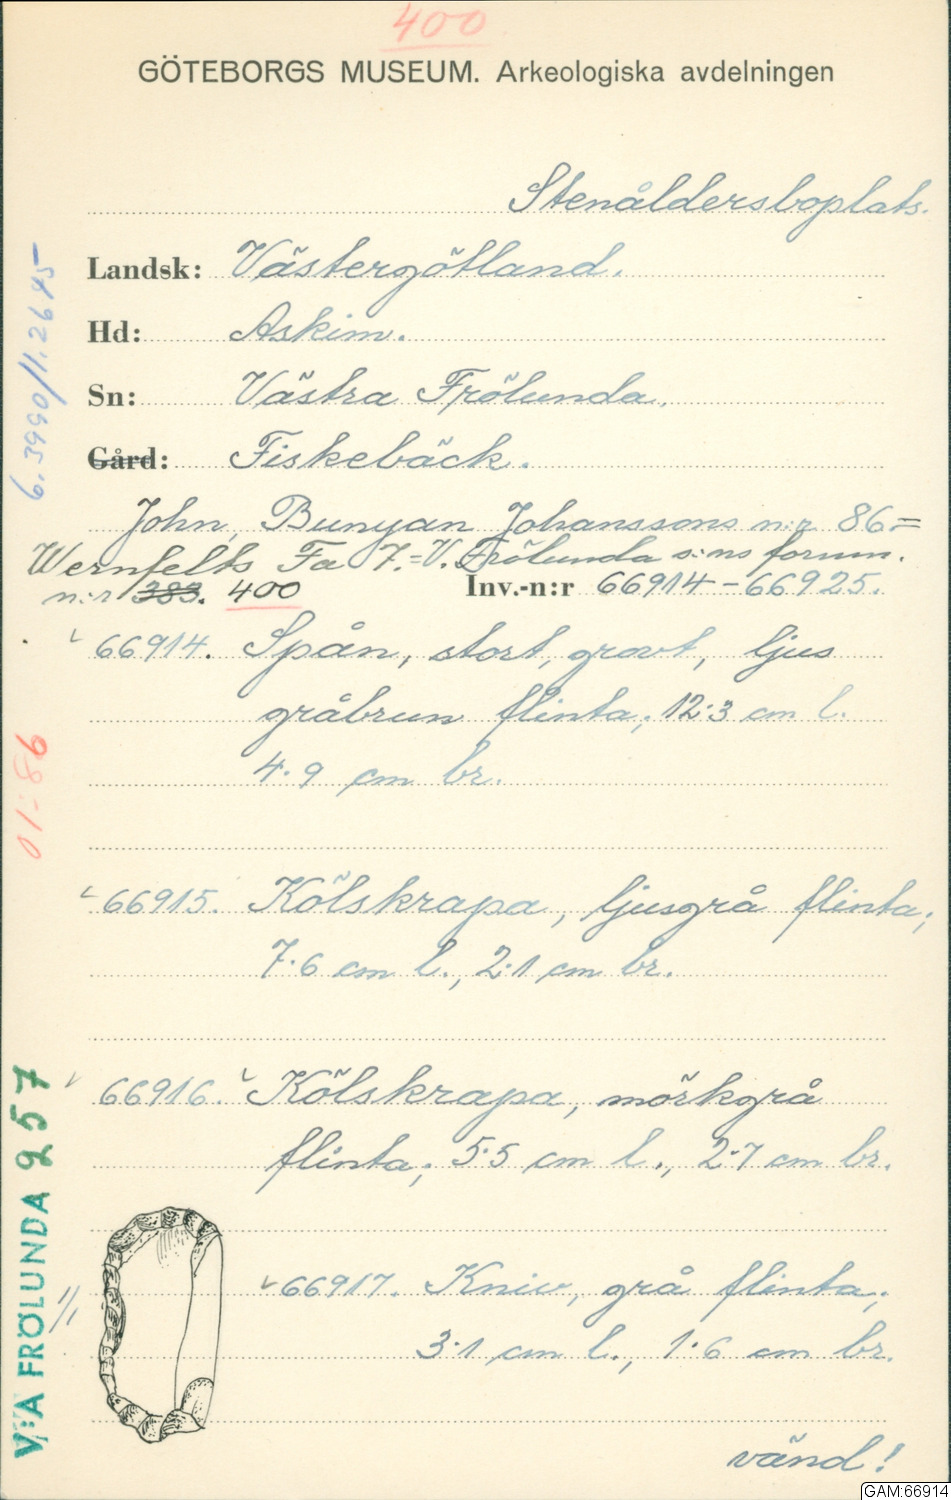 400
GÖTEBORGS MUSEUM. Arkeologiska avdelningen
Stenåldersboplats.
Landsk: Västergötland.
Hd: Askim.
Sn: Västra Frölunda.
Gård: Fiskebäck.
John Bunyan Johanssons n:r 86=
Wernfelts Fa 7.=V. Frölunda s:ns fornm.
n:r 383. 400 Inv.-n:r 66914-66925.
66914. Spån, stort, grovt, ljus
gråbrun flinta; 12·3 cm l.
4·9 cm br.
66915. Kölskrapa, ljusgrå flinta;
7·6 cm l., 2·1 cm br.
66916. Kölskrapa, mörkgrå
flinta; 5·5 cm l., 2·7 cm br.
66917. Kniv, grå flinta;
3·1 cm l., 1·6 cm br.
vänd!
6.3990/1.2645
01-86
V:A FRÖLUNDA 257
1/1
GAM:66914